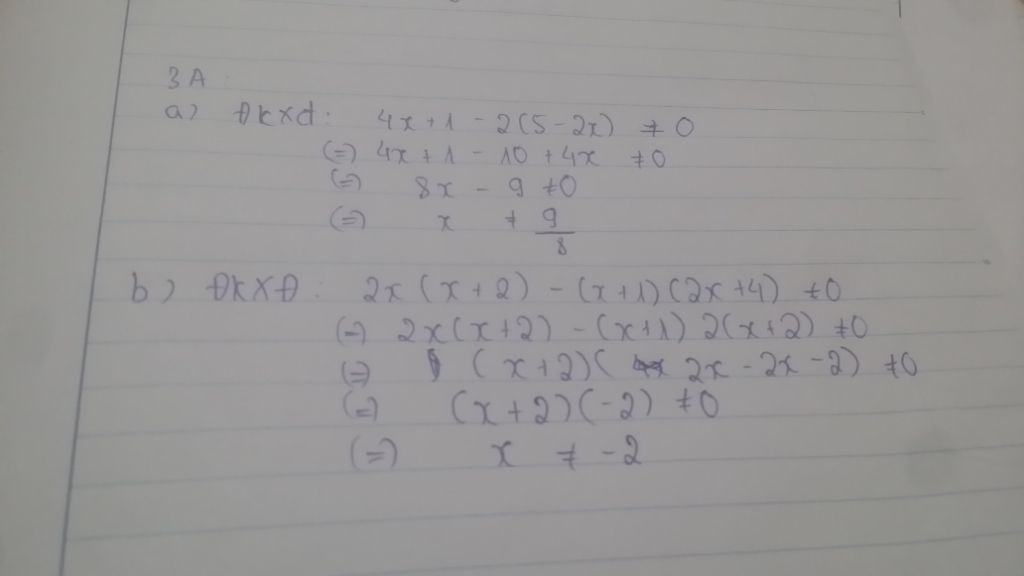 3A.
a) ĐKXĐ: 4x + 1 - 2(5 - 2x) ≠ 0
(=) 4x + 1 - 10 + 4x ≠ 0
(=) 8x - 9 ≠ 0
(=) x ≠ 9/8
b) ĐKXĐ: 2x(x + 2) - (x + 1)(2x + 4) ≠ 0
(=) 2x(x + 2) - (x + 1) 2(x + 2) ≠ 0
(=) (x + 2)( 2x - 2x - 2) ≠ 0
(=) (x + 2)(-2) ≠ 0
(=) x ≠ -2